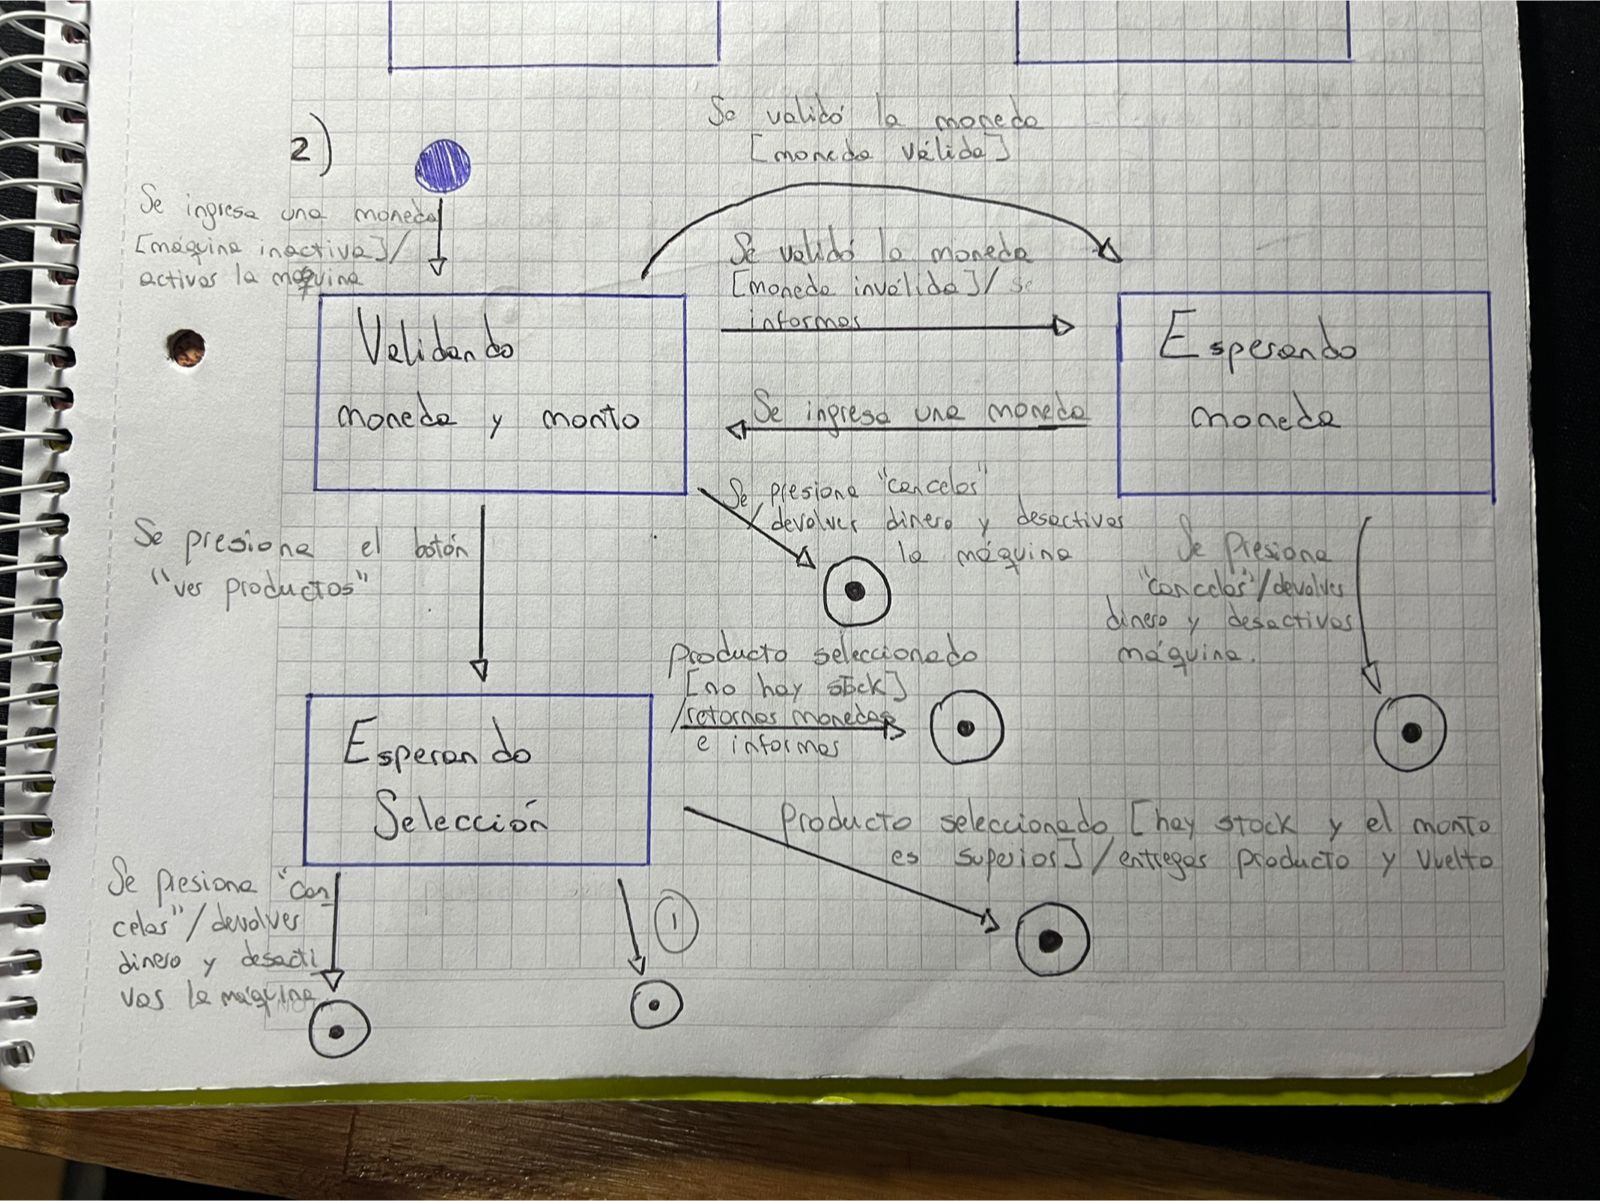 2)
Se validó la moneda
[moneda válida]
Se ingresa una moneda
[máquina inactiva]/
activar la máquina
Se validó la moneda
[moneda inválida]/ se
informar
Validando
moneda y monto
Esperando
moneda
Se ingresa una moneda
Se presiona "cancelar"
/devolver dinero y desactivar
la máquina
Se presiona el botón
"ver productos"
Se presiona
"cancelar"/devolver
dinero y desactivar
máquina.
Producto seleccionado
[no hay stock]
/retornar monedas
e informar
Esperando
Selección
Producto seleccionado [hay stock y el monto
es superior]/entregar producto y vuelto
Se presiona "can
celar"/devolver
dinero y desacti
var la máquina
1